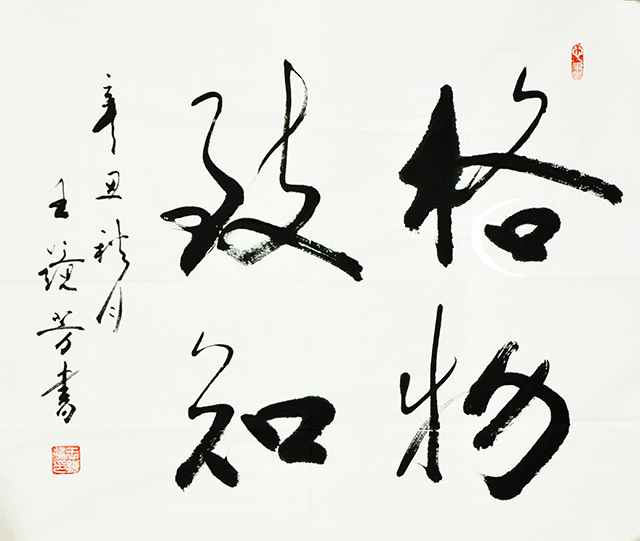 格物
致知
辛丑秋月
王 芳書